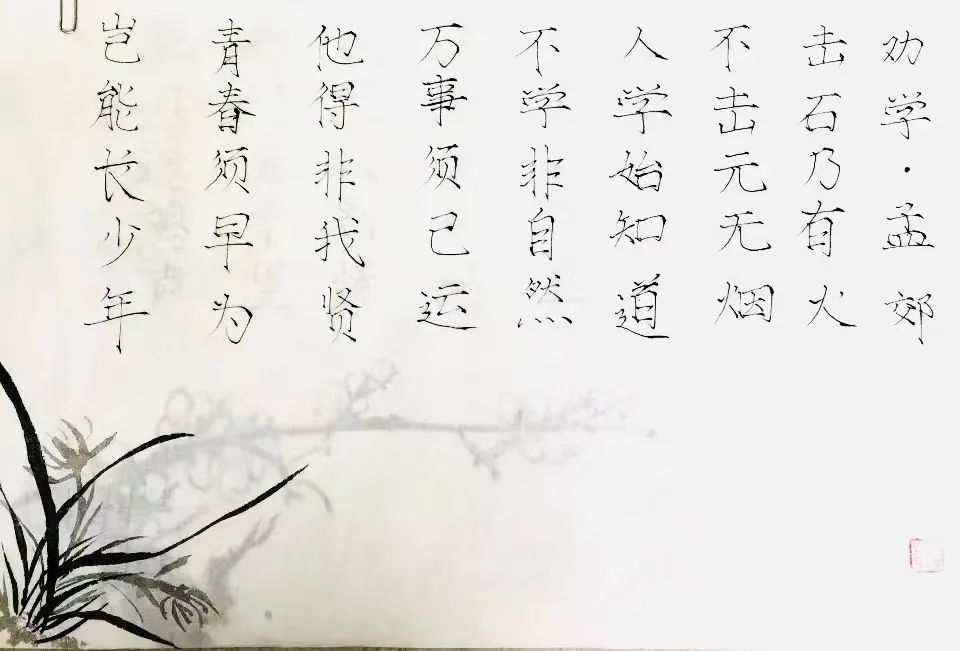 劝学·孟郊
击石乃有火
不击元无烟
人学始知道
不学非自然
万事须己运
他得非我贤
青春须早为
岂能长少年